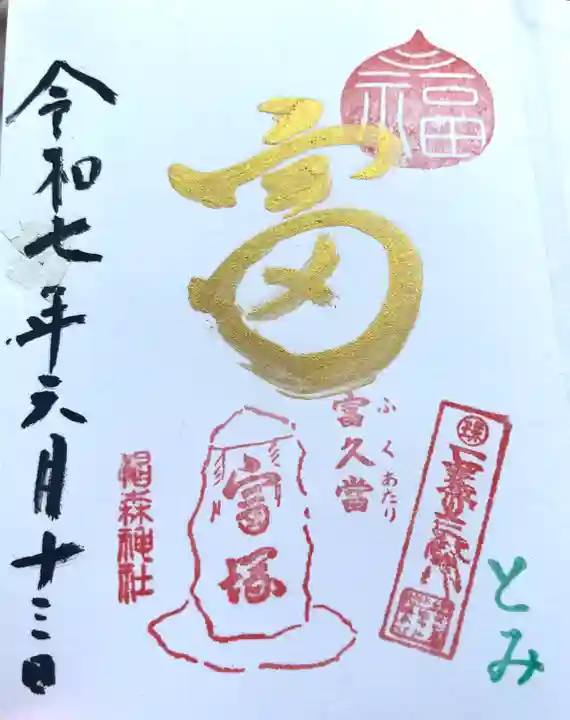 福
富
富久當
ふくあたり
とみ
富塚
椙森神社
令和七年六月十三日